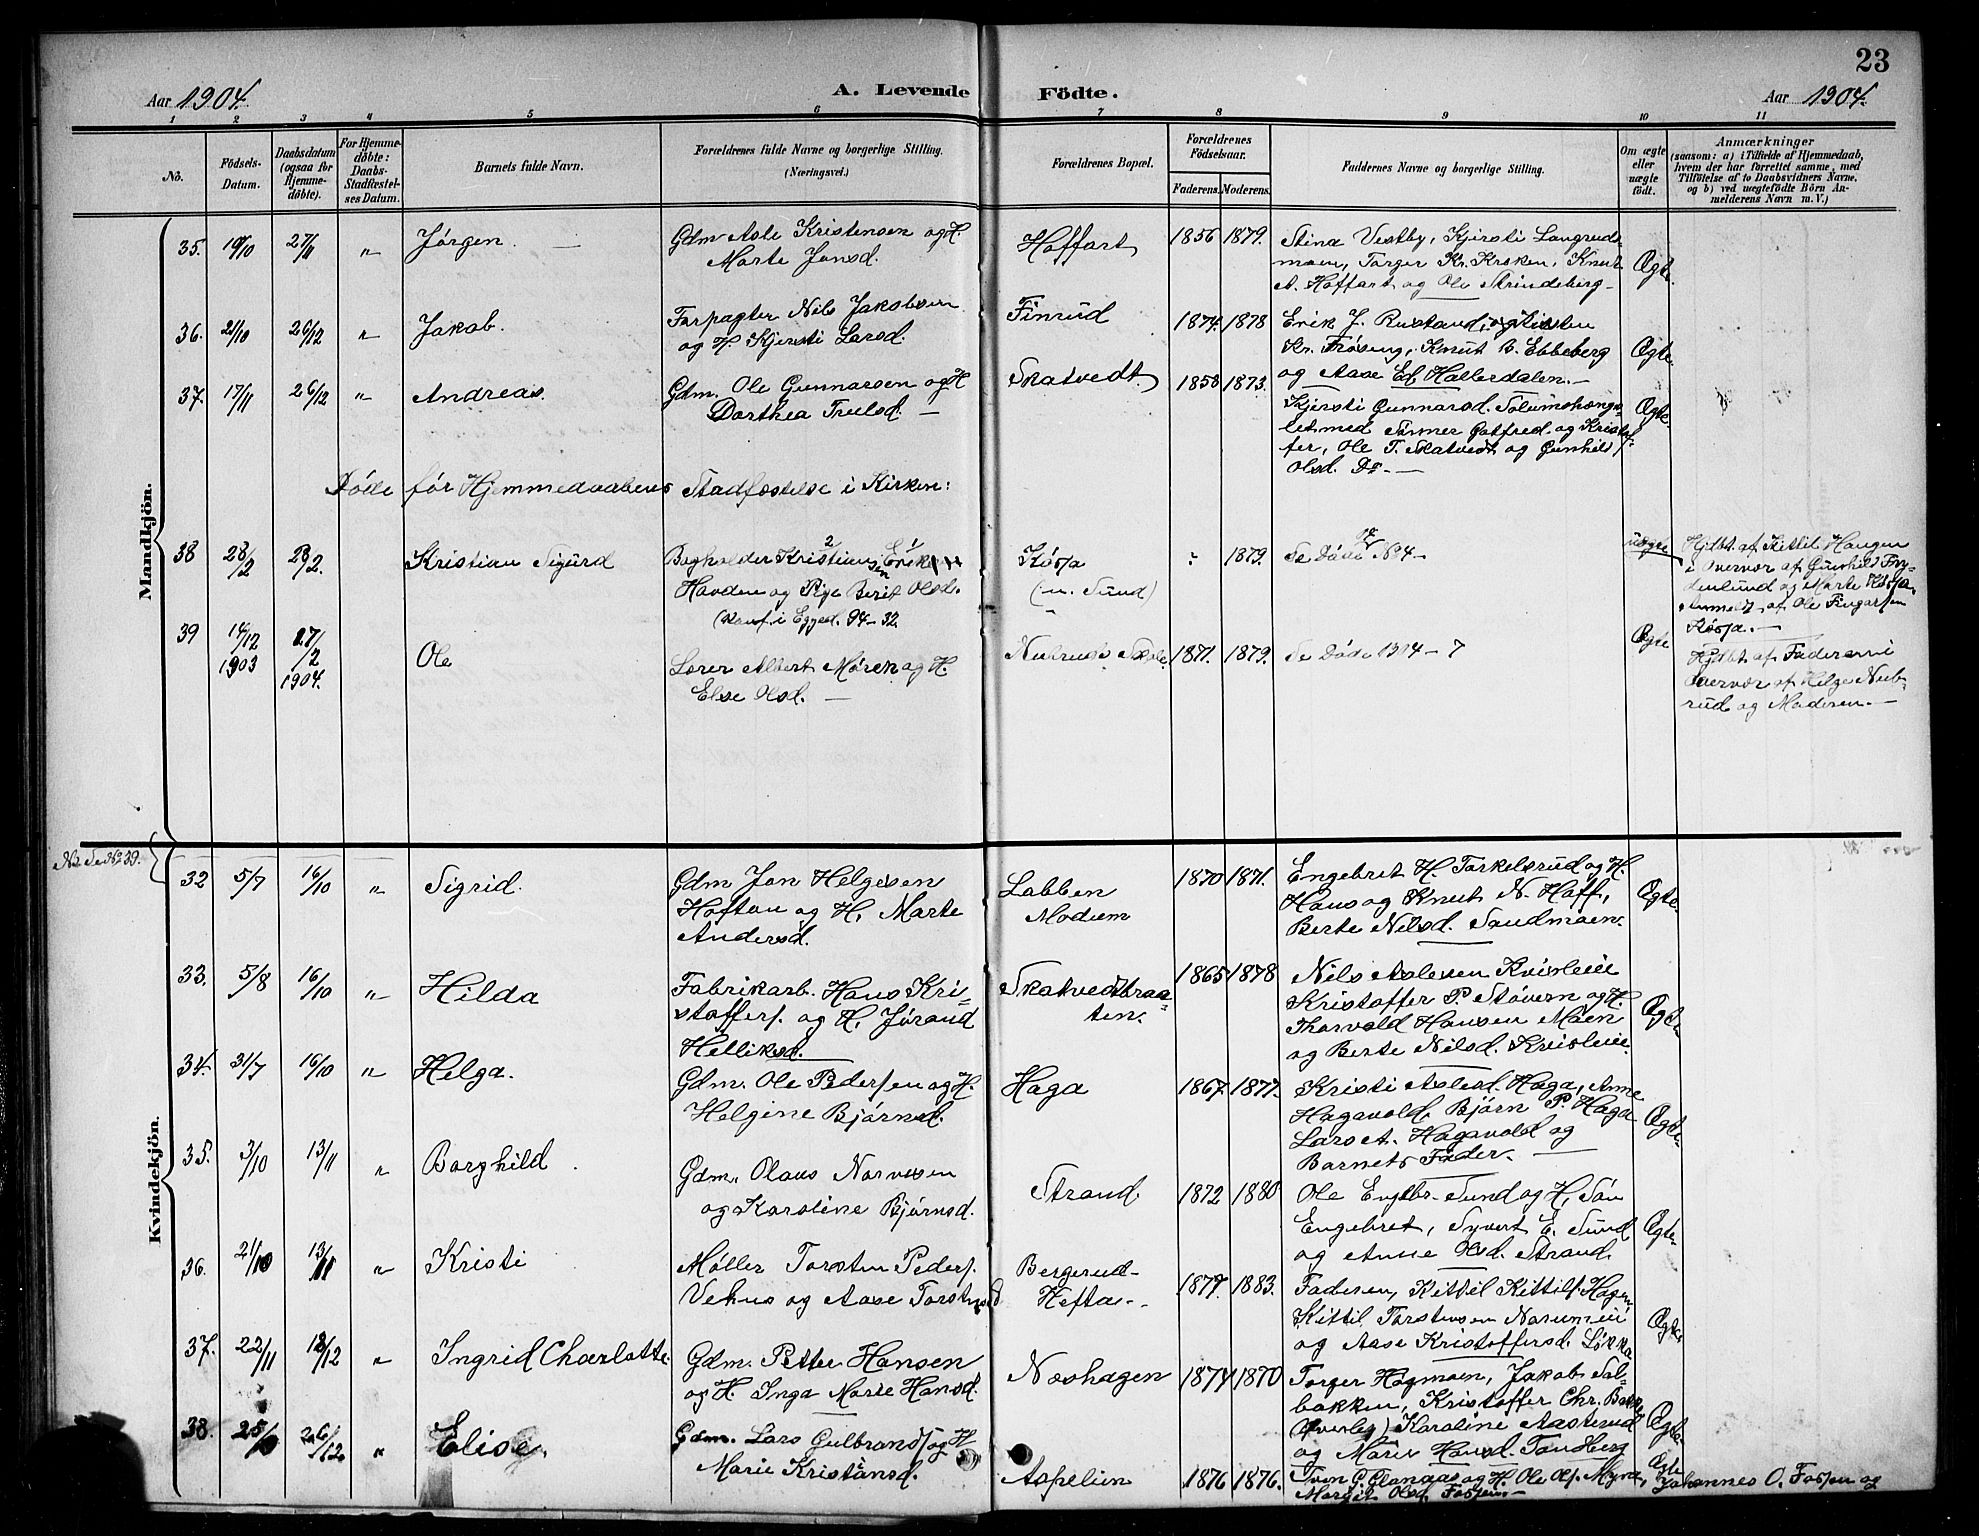 23
Aar 1904.
A. Levende Födte.
Aar 1904.
1 2 3 4 5 6 7 8 9 10 11
No.
Födsels-Datum.
Daabsdatum (ogsaa for Hjemmedöbte).
For Hjemmedöbte: Daabs-Stadfæstelses Datum.
Barnets fulde Navn.
Forældrenes fulde Navne og borgerlige Stilling.
(Næringsvei.)
Forældrenes Bopæl.
Forældrenes Födselsaar.
Faderens. Moderens.
Faddernes Navne og borgerlige Stilling.
Om ægte eller uægte födt.
Anmærkninger
(saasom: a) i Tilfælde af Hjemmedaab,
hvem der har forrettet samme, med
Tilföielse af to Daabsvidners Navne,
og b) ved uægtefödte Börn Anmelderens
Navn m. V.)
Mandkjön.
35. 27/11 " Jørgen. Gdm Asle Kristensen og H. Marte Jonsd. Hoffart 1856 1879. Stina Vestby, Kjersti Langrudsmoen, Torger Kr. Krsken, Knut A. Hoffart og Ole Strindeberg Ægte.
36. 21/10 26/12 " Jakob. Forpagter Nils Jakobsen og H. Kjersti Larsd. Finrud 1874. 1878 Erik J. Rustand, Kr. Frøseng, Knut B. Ebbeberg og Aase Ed. Hallerdalen. Ægte.
37. 17/11 26/12 " Andreas. Gdm. Ole Gunnarsen og H Dorthea Trulsd. Skatvedt 1858 1873. Kjersti Gunnarsd. med Sönner Gotfred og Kristoffer, Ole T. Skatvedt og Gunhild Olsd. Do Ægte.
Döde för Hjemmedaabens Stadfæstelse i Kirken:
38 28/2 28/2. Kristian Sigurd Bogholder Kristian Havden og Pige Berit Olsd. 94-32. (n. Sund) 1879. Se Döde No 4 uægte Hjdbt. af Kittil Haugen i Overvær af Gunhild Frydenlund og Marte Anmeldt af Ole
39 14/12 1903 27/2 1904. Ole Lærer Albert Møren og H. Else Olsd. Nubruds Skole. 1871. 1879. Se Döde 1904 - 7 Ægte Hjdbt af Faderen i Overvær af Helge Nubrud og Moderen.
Kvindekjön.
Se No 39.
32 5/7 16/10 " Sigrid. Gdm Jon Helgesen Hoftan og H. Marte Andersd. Labben Modum 1870 1871. Engebret H. Torkelsrud og H. Hans og Knut N. Hoff, Berte Nilsd. Sandmoen. Ægte.
33. 5/8 16/10 " Hilda Fabrikarb. Hans Kristoffers. og H. Jörand Helliksd. Skatvedtbraaten. 1865 1878 Nils Aslesen Kvisleie Kristoffer P. Støvern og H. Thorvald Hansen Moen og Berte Nilsd. Kvisleie. Ægte.
34. 31/7 16/10 " Helga. Gdm. Ole Pedersen og H. Helgine Björnsd. Haga 1867. 1877. Kristi Aslesd. Haga, Anne Hagavold, Björn P. Haga Lars A. Hagavold og Barnets Fader. Ægte.
35. 3/10 13/11 " Borghild Gdm. Olaus Narvesen og Karoline Björnsd. Strand. 1872 1880 Ole Engebr. Sund og H. Sön Engebret, Syvert E. Sund og Anne Olsd. Strand. Ægte.
36. 21/10 13/11 " Kristi Møller Torsten Peders. Vehus og Aase Torstensd Bergerud-Hefta. 1877. 1883. Faderen, Kittil Kittils. Hagen Kittil Torstensen og Aase Kristoffersd. Løkka Ægte
37. 22/11 18/12 " Ingrid Charlotte. Gdm. Petter Hansen og H. Inga Marie Hansd. Næshagen 1874 1870 Torger Hagmoen, Jakob Solbakken, Kristoffer Chr. Bakke Karoline Aasterud og Marie Hansd. Tandberg Ægte.
38. 26/12. " Elise. Gdm. Lars Gulbrands. og H. Marie Kristiansd. Aspelien 1876 1876. og H. Ole Ols. Myra, Margit Olsd. Fossen. Ægte Johannes O. Fossen og